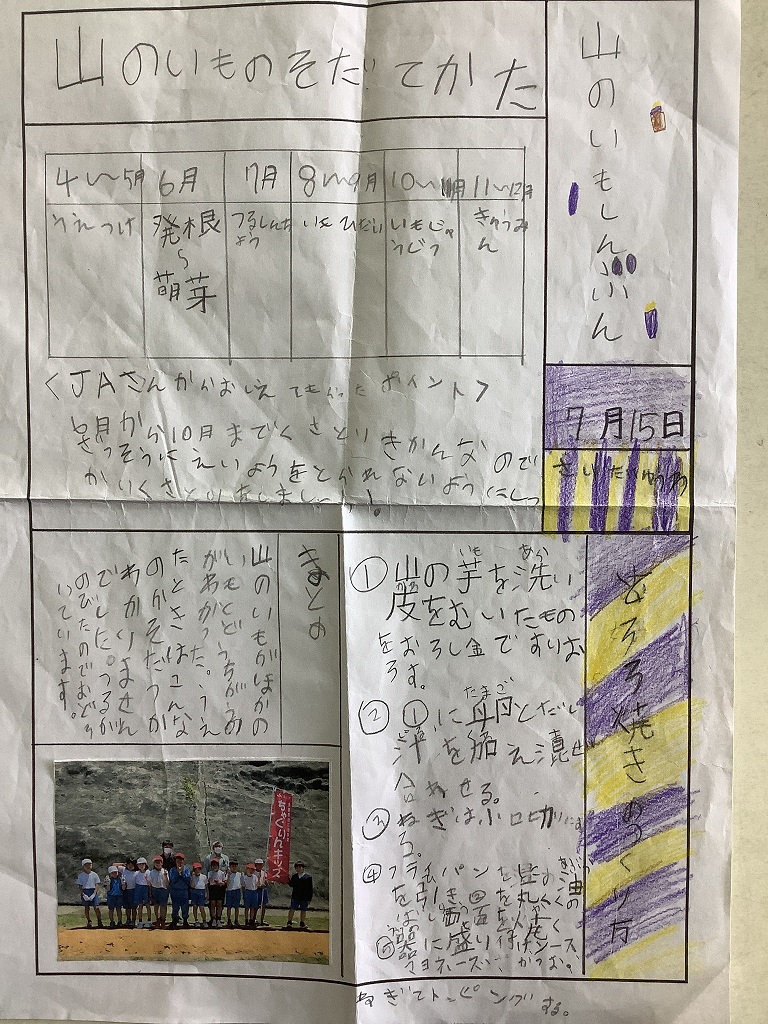 山のいもしんぶん
7月15日
山のいものそだてかた
4〜5月 6月 7月 8〜9月 10〜11月 11〜12月
うえつけ 発根〜萌芽 つるしんちょう いも ひだい いもじゅうじつ きゅうみん
<JAさんからおしえてもらったポイント>
から10月までくさとりきかんなので
ざっそうにえいようをとられないようにしっ
かりくさとりをしましょう!
とろろ焼きのつくり方
①山の芋を洗い
皮をむいたもの
をおろし金ですりお
ろす。
②①に卵とだし
汁を加え混ぜ
合わせる。
③ねぎは小口切りにす
る。
④フライパンを
⑤器に盛り付けソース
マヨネーズ、かつお、
ねぎでトッピングする。
まとめ
山のいもがほかの
いもとどうちがうか
がわかった。うえ
たときはこんな
のがそだつか
わかりません
でした。つるが
のびたのでおどろ
いています。
ちゃぐりんキッズ